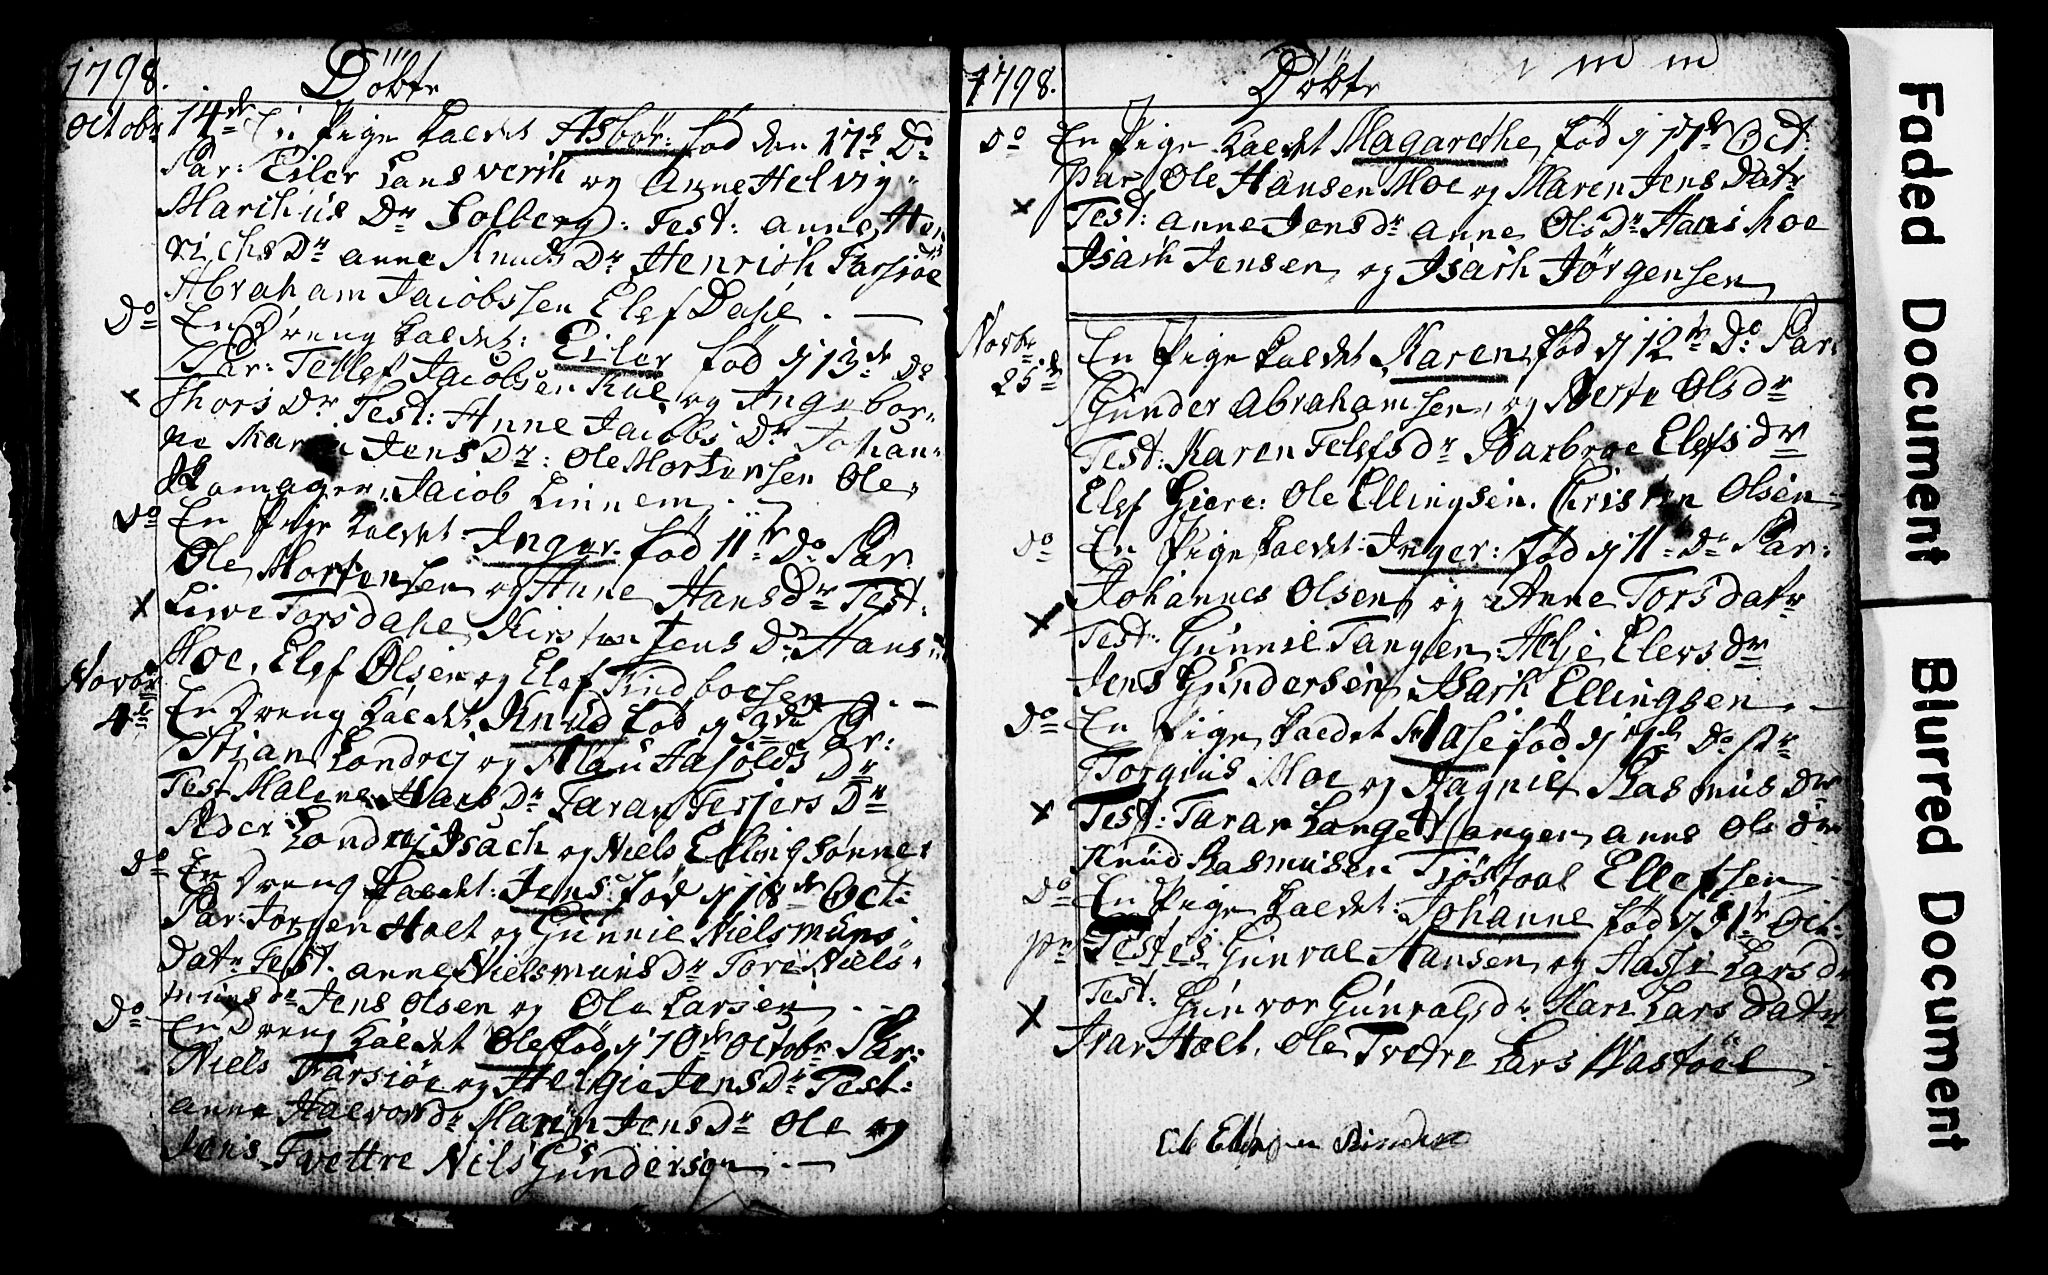 1798. Döbte
Octobr 14de En Pige kaldet Asbör: fød den 17de Do
Par: Eiler Lansverk og Anne Helvig
Marchus Dr Solberg: Test: anne Hen
richs Dr anne Knuds Dr Henrich Farsjøe
Abraham Jacobssen Elef Dahle. —
Do En Dreng kaldet: Eiler fød d 13de Do
Par: Tellef Jacobsen og Ingebor
Thors Dr Test: Anne Jacobs Dr Johan-
ne Maria Jens Dr: Ole Mortensen Ole
Jacob Linnem. —
Do En Pige kaldet Inger fød 11te Do Par
Ole Mortensen og Anne Hans Dr Test:
Live Torsdahle Kirsten Jens Dr Hans
Moe, Elef Olsen og Elef Findboesen. —
Novbr 4de En Dreng kaldet Knud fød d 3de Par:
Stian Londrej og Aasolds Dr
Test Malene Hans Dr Taran Terjers Dr
Peder Londrej Isach og Niels Ellingsønner
Do En Dreng kaldet: Jens: fød d 18de Oct:
Par: Jørgen Holt og Gunnil Nielsmuns
Datr Test. anne Nielsmuns Dr Tore Niels
muns dr Jens Olsen og Ole Larsen. —
Do En Dreng kaldet Ole fød d 10de Octobr Par:
Niels Farsiøe og Helgie Jens Dr Test:
anne Halvors dr Maren Jens Dr Ole og
Jens Tvettre Nils Gunderson. —
1798. Döbte
Do En Pige kaldet Magarethe, fød d 11de Oct:
Par Ole Hansen Moe og Maren Jens Datr
Test: anne Jens dr anne Ols Dr Hans Moe
Isach Jensen og Isach Jörgensen
Novbr En Pige kaldet Karen, fød d 12te Do Par:
25de Gunder Abrahamsen, og Berte Ols dr
Test: Karen Telefs dr Barbroe Elefs dr
Elef Giere: Ole Ellingsen. Christen Olsen
Do En Pige kaldet: Inger: fød d 11te Do Par:
Johannes Olsen og Anne Tors datr
Test: Gunnil Tangen, Helje Elevs dr
Jens Gundersen, Isach Ellingsen. —
Do En Pige kaldet Aase fød d Do Pr
Torgius Moe og Aagnil Rasmus dr
Test: Taran Langetanger, anne Ols dr
Knud Rasmusen Tjøstoal Ellefsen
Do En Pige kaldet: Johanne fød d 31te Oct:
Pr Testes Gunval Hansen, og Aasse Lars dr
Test: Gunvor Gunvalds dr Mari Lars Datr
Ivar Holt. Ole Tvedre Lars Wastøel.
Faded Document
Blurred Document